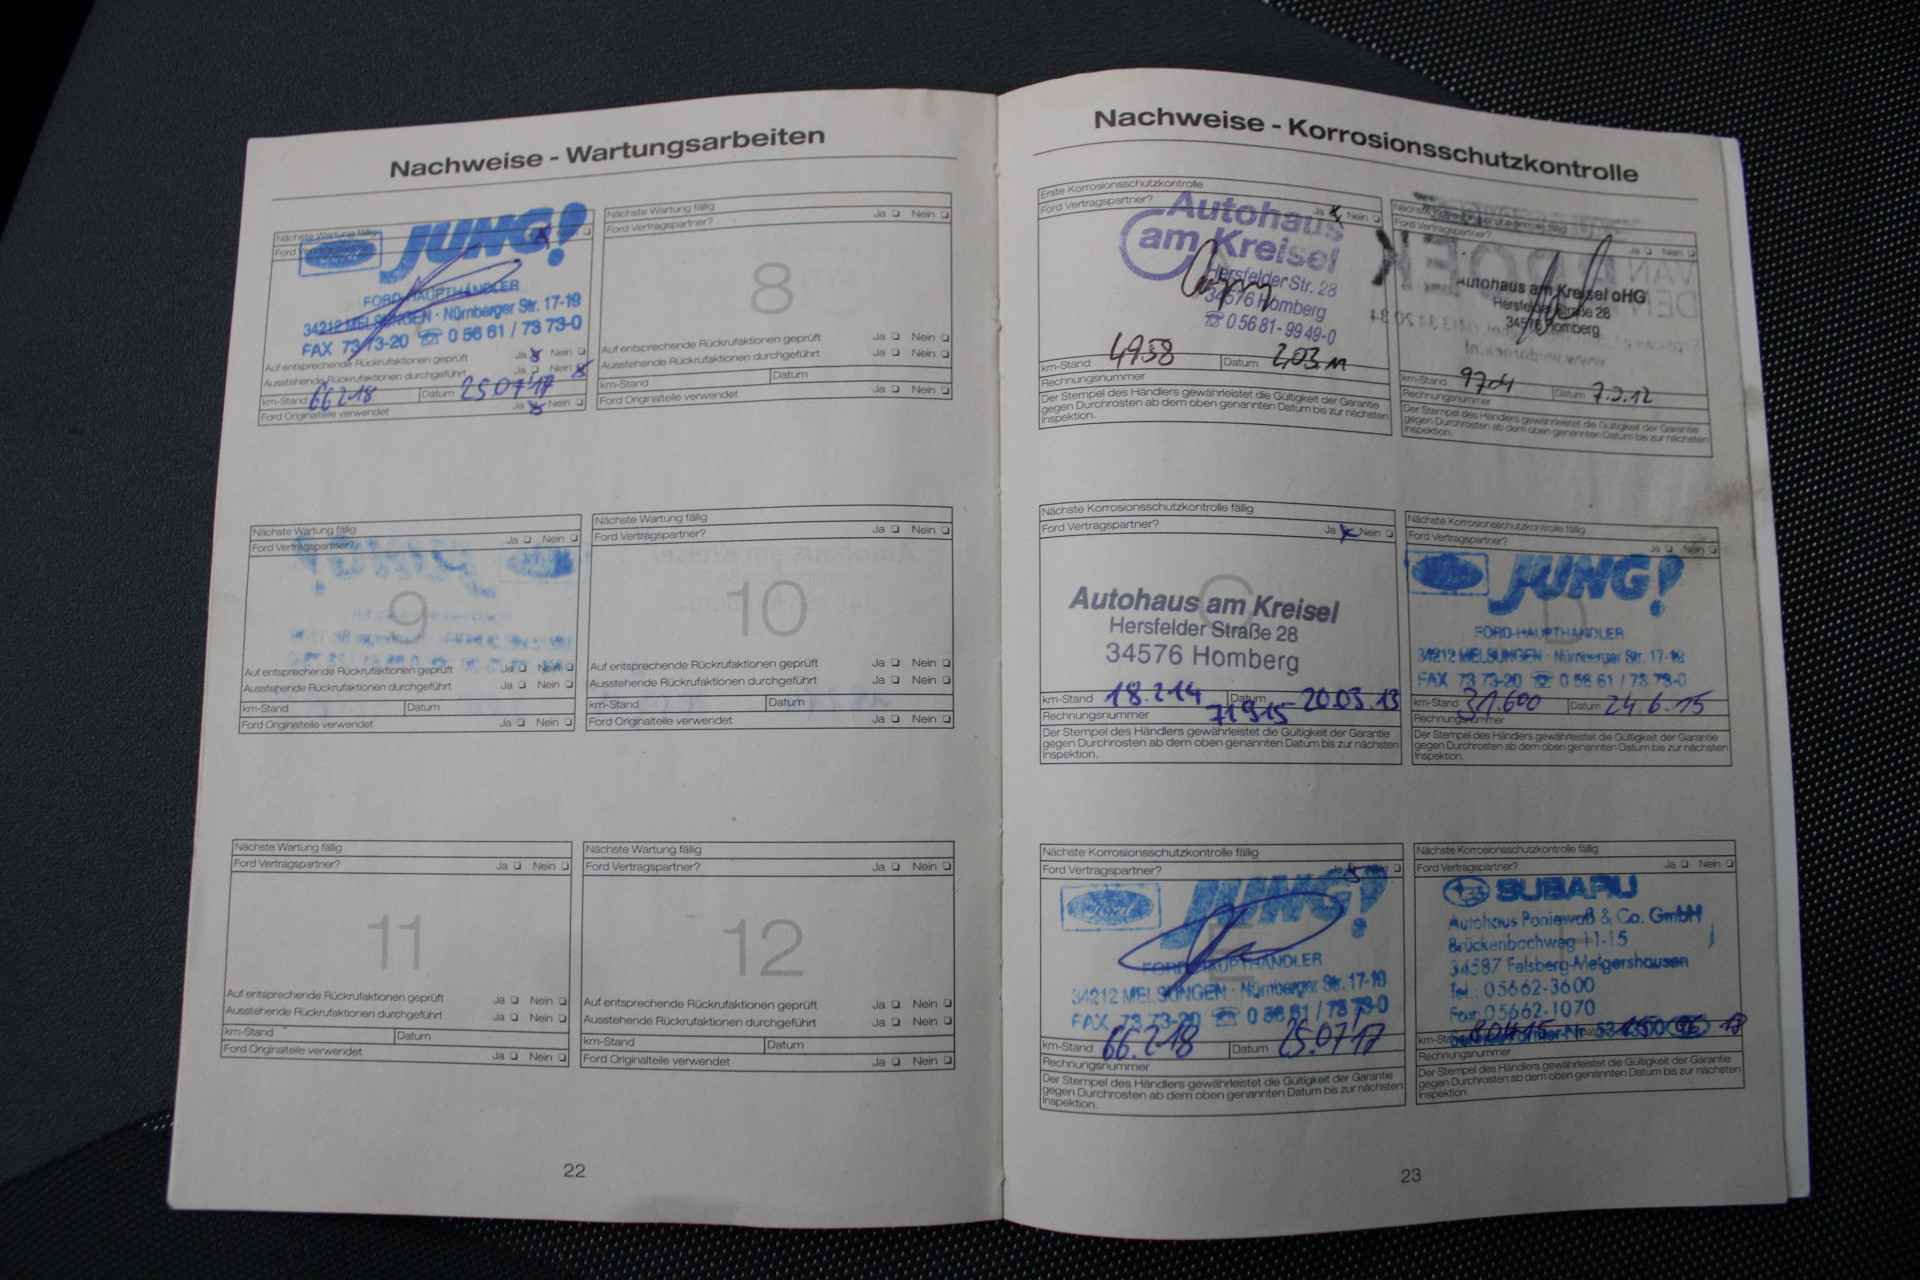 Nachweise - Wartungsarbeiten
Nächste Wartung fällig
Ford
JUNG!
FORD-HAUPTHÄNDLER
34212 MELSUNGEN · Nürnberger Str. 17-19
FAX 73 73-20 ☎ 0 56 61 / 73 73-0
Auf entsprechende Rückrufaktionen geprüft Ja Nein
Ausstehende Rückrufaktionen durchgeführt Ja Nein
km-Stand 66218 Datum 25.07.17
Ford Originalteile verwendet Ja Nein
Nächste Wartung fällig
Ford Vertragspartner? Ja Nein
8
Auf entsprechende Rückrufaktionen geprüft Ja Nein
Ausstehende Rückrufaktionen durchgeführt Ja Nein
km-Stand Datum
Ford Originalteile verwendet Ja Nein
Nächste Wartung fällig
Ford Vertragspartner? Ja Nein
9
Auf entsprechende Rückrufaktionen geprüft Ja Nein
Ausstehende Rückrufaktionen durchgeführt Ja Nein
km-Stand Datum
Ford Originalteile verwendet Ja Nein
Nächste Wartung fällig
Ford Vertragspartner? Ja Nein
10
Auf entsprechende Rückrufaktionen geprüft Ja Nein
Ausstehende Rückrufaktionen durchgeführt Ja Nein
km-Stand Datum
Ford Originalteile verwendet Ja Nein
Nächste Wartung fällig
Ford Vertragspartner? Ja Nein
11
Auf entsprechende Rückrufaktionen geprüft Ja Nein
Ausstehende Rückrufaktionen durchgeführt Ja Nein
km-Stand Datum
Ford Originalteile verwendet Ja Nein
Nächste Wartung fällig
Ford Vertragspartner? Ja Nein
12
Auf entsprechende Rückrufaktionen geprüft Ja Nein
Ausstehende Rückrufaktionen durchgeführt Ja Nein
km-Stand Datum
Ford Originalteile verwendet Ja Nein
22
Nachweise - Korrosionsschutzkontrolle
Erste Korrosionsschutzkontrolle
Ford Vertragspartner? Ja Nein
Autohaus
am Kreisel
Hersfelder Str. 28
34576 Homberg
☎ 0 56 81 - 99 49-0
km-Stand 4958 Datum 2.03.11
Rechnungsnummer
Der Stempel des Händlers gewährleistet die Gültigkeit der Garantie
gegen Durchrosten ab dem oben genannten Datum bis zur nächsten
Inspektion.
Ford Vertragspartner? Ja Nein
Autohaus am Kreisel oHG
Hersfelder Straße 28
34576 Homberg
km-Stand 9704 Datum 7.3.12
Rechnungsnummer
Der Stempel des Händlers gewährleistet die Gültigkeit der Garantie
gegen Durchrosten ab dem oben genannten Datum bis zur nächsten
Inspektion.
Nächste Korrosionsschutzkontrolle fällig
Ford Vertragspartner? Ja Nein
Autohaus am Kreisel
Hersfelder Straße 28
34576 Homberg
km-Stand 18.214 Datum 20.03.13
Rechnungsnummer 71915
Der Stempel des Händlers gewährleistet die Gültigkeit der Garantie
gegen Durchrosten ab dem oben genannten Datum bis zur nächsten
Inspektion.
Nächste Korrosionsschutzkontrolle fällig
Ford Vertragspartner? Ja Nein
JUNG!
FORD-HAUPTHÄNDLER
34212 MELSUNGEN · Nürnberger Str. 17-19
FAX 73 73-20 ☎ 0 56 61 / 73 73-0
km-Stand 31.600 Datum 24.6.15
Rechnungsnummer
Der Stempel des Händlers gewährleistet die Gültigkeit der Garantie
gegen Durchrosten ab dem oben genannten Datum bis zur nächsten
Inspektion.
Nächste Korrosionsschutzkontrolle fällig
Ford Vertragspartner? Ja Nein
Ford JUNG!
FORD-HAUPTHÄNDLER
34212 MELSUNGEN · Nürnberger Str. 17-19
FAX 73 73-20 ☎ 0 56 61 / 73 73-0
km-Stand 66.218 Datum 25.07.17
Rechnungsnummer
Der Stempel des Händlers gewährleistet die Gültigkeit der Garantie
gegen Durchrosten ab dem oben genannten Datum bis zur nächsten
Inspektion.
Nächste Korrosionsschutzkontrolle fällig
Ford Vertragspartner? Ja Nein
SUBARU
Autohaus Poniewaß & Co. GmbH
Brückenbachweg 11-15
34587 Felsberg-Melgershausen
Tel.: 05662-3600
Fax: 05662-1070
Rechnungsnummer
Der Stempel des Händlers gewährleistet die Gültigkeit der Garantie
gegen Durchrosten ab dem oben genannten Datum bis zur nächsten
Inspektion.
23